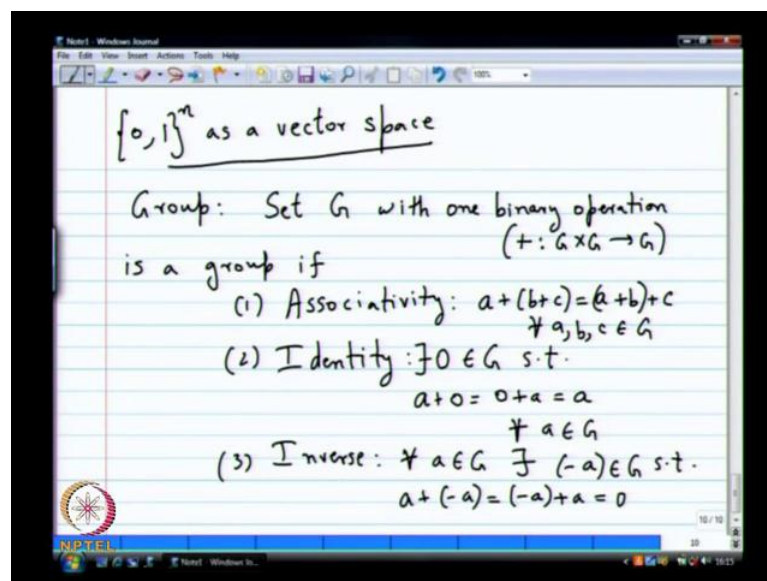 Note1 - Windows Journal
File Edit View Insert Actions Tools Help
100%
{0,1}ⁿ as a vector space
Group: Set G with one binary operation
(+: G×G → G)
is a group if
(1) Associativity: a+(b+c)=(a+b)+c
∀ a,b,c ∈ G
(2) Identity: ∃ 0 ∈ G s.t.
a+0 = 0+a = a
∀ a ∈ G
(3) Inverse: ∀ a ∈ G ∃ (-a) ∈ G s.t.
a+(-a) = (-a)+a = 0
10/10
10
NPTEL
Note1 - Windows Jo...
16:15